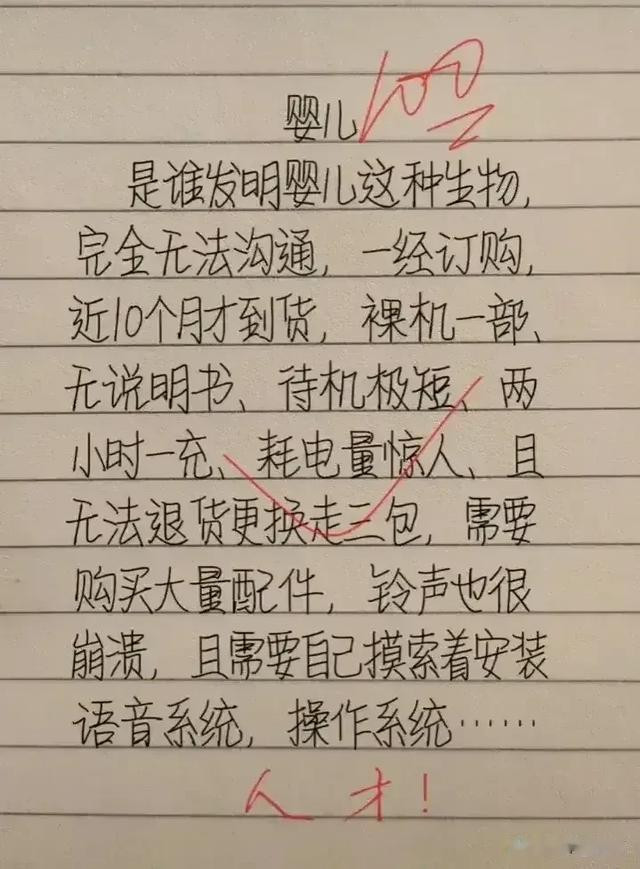 婴儿 100
是谁发明婴儿这种生物,
完全无法沟通, 一经订购,
近10个月才到货, 裸机一部、
无说明书、待机极短、两
小时一充、耗电量惊人、且
无法退货更换走三包, 需要
购买大量配件, 铃声也很
崩溃, 且需要自己摸索着安装
语音系统, 操作系统……
人才!